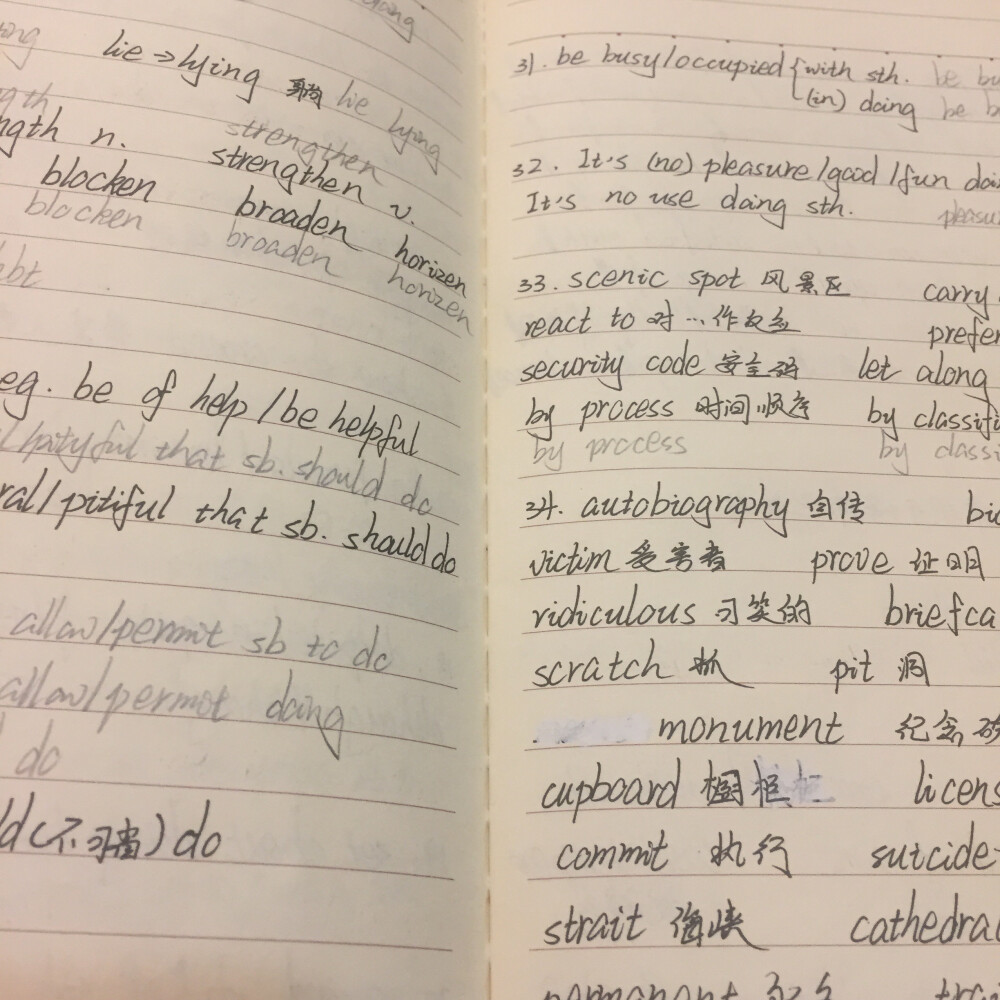 lie → lying lie lying
strengthen
ngth n. strengthen v.
blocken broaden horizen
blocken broaden horizen
eg. be of help / be helpful
that sb. should do
ral / pitiful that sb. should do
allow / permit sb to do
allow / permot doing
do
d (不可省) do
31. be busy / occupied { with sth. be bu
(in) doing be b
32. It's (no) pleasure / good / fun doi
It's no use doing sth. pleasu
33. scenic spot 风景区 carry
react to 对…作反应 prefer
security code 安全码 let along
by process 时间顺序 by classifi
by process by classi
34. autobiography 自传 bio
victim 受害者 prove 证明
ridiculous 可笑的 briefca
scratch 抓 pit 洞
monument 纪念碑
cupboard 橱柜 licens
commit 执行 suicide
strait 海峡 cathedra
permanant 永久